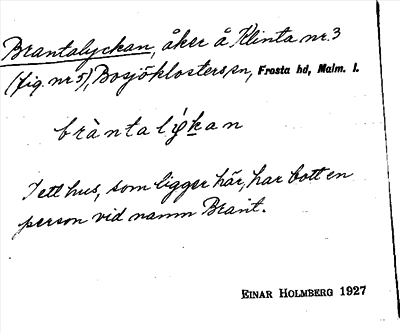 Brantalyckan, åker å Klinta nr. 3
(fig. nr 5), Bosjöklosters sn, Frosta hd, Malm. l.
bràntalýkan
I ett hus, som ligger här, har bott en
person vid namn Brant.
EINAR HOLMBERG 1927